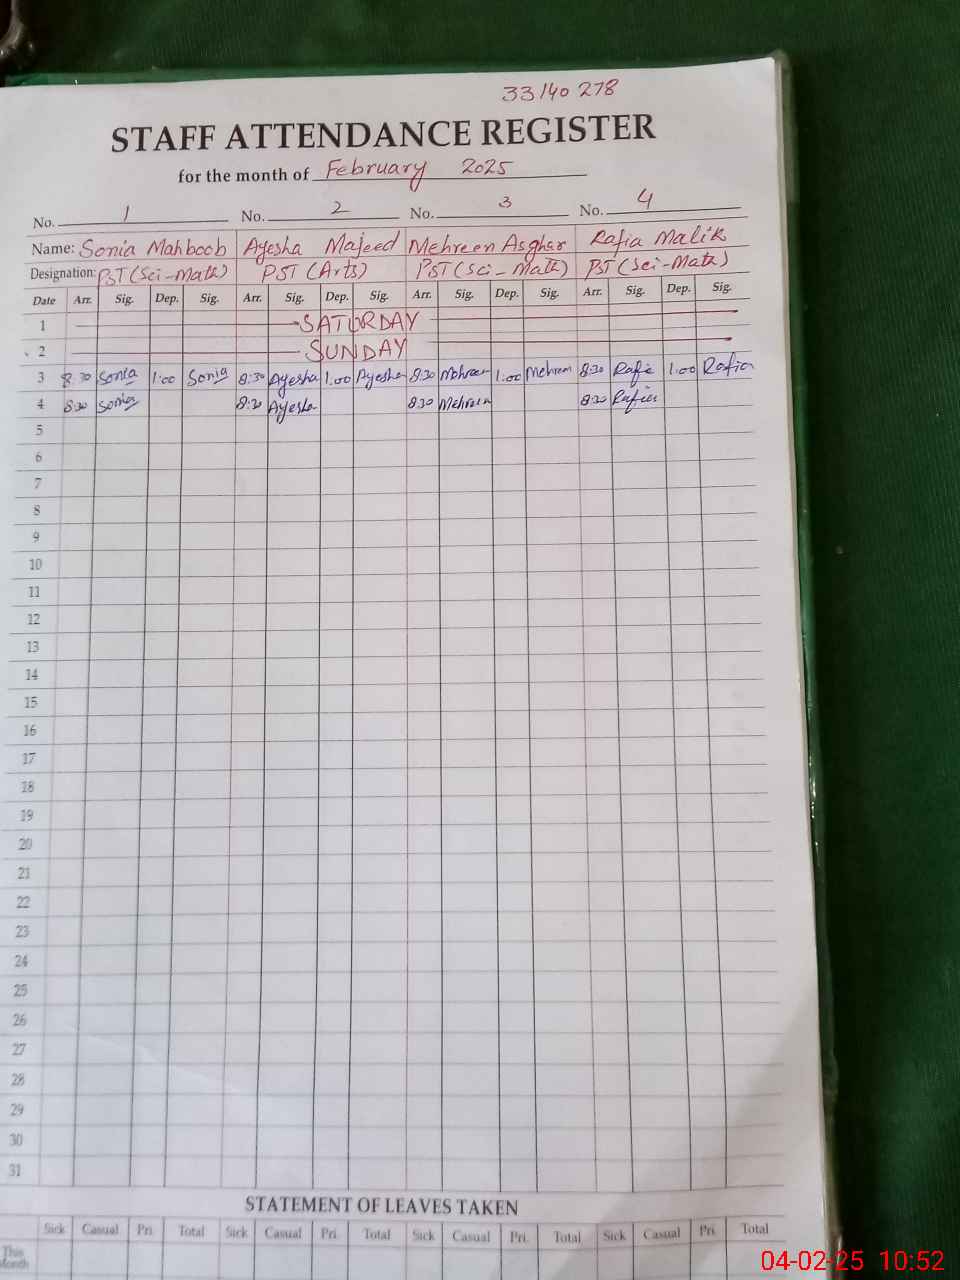 33140278
STAFF ATTENDANCE REGISTER
for the month of February 2025
No. 1 No. 2 No. 3 No. 4
Name: Sonia Mahboob Ayesha Majeed Mehreen Asghar Rafia Malik
Designation: PST (Sci-Math) PST (Arts) PST (Sci-Math) PST (Sci-Math)
Date Arr. Sig. Dep. Sig. Arr. Sig. Dep. Sig. Arr. Sig. Dep. Sig. Arr. Sig. Dep. Sig.
1 SATURDAY
2 SUNDAY
3 8:30 Sonia 1:00 Sonia 8:30 Ayesha 1:00 Ayesha 8:30 Mehreen 1:00 Mehreen 8:30 Rafia 1:00 Rafia
4 8:30 Sonia 8:30 Ayesha 8:30 Mehreen 8:30 Rafia
5
6
7
8
9
10
11
12
13
14
15
16
17
18
19
20
21
22
23
24
25
26
27
28
29
30
31
STATEMENT OF LEAVES TAKEN
Sick Casual Pri. Total Sick Casual Pri. Total Sick Casual Pri. Total Sick Casual Pri. Total
This
Month
04-02-25 10:52